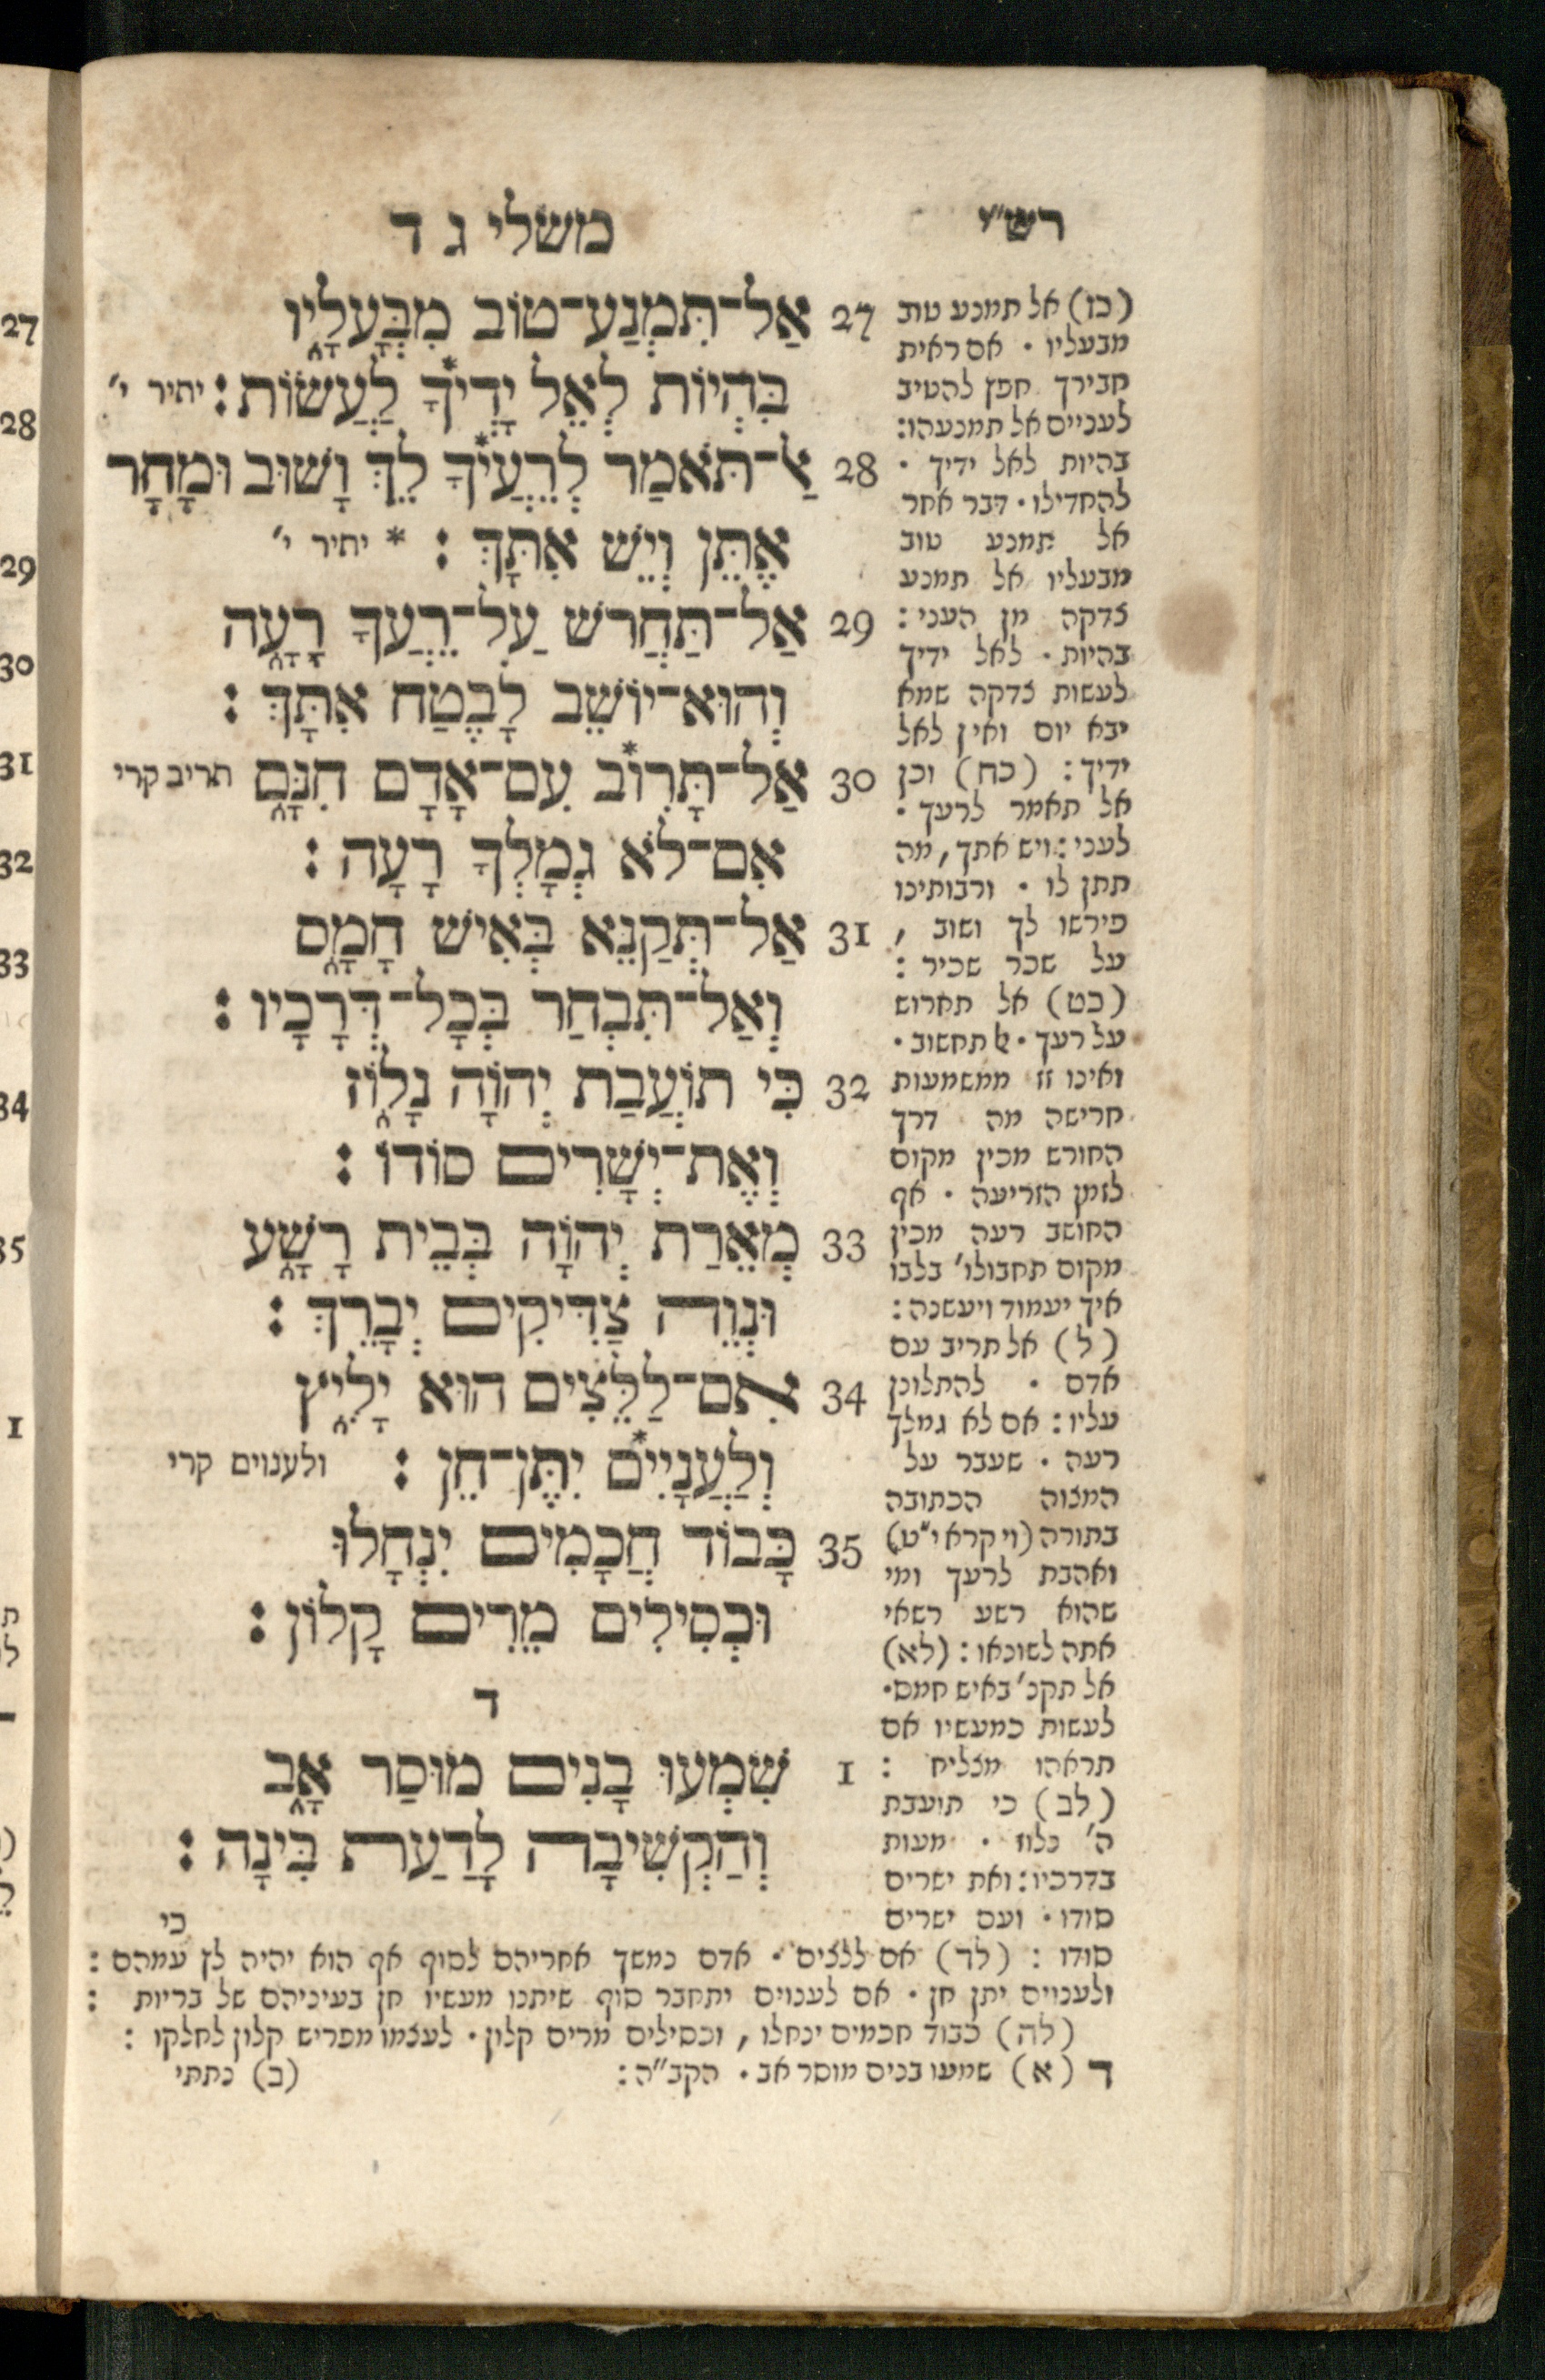 רש״י
משלי ג ד
27 אַל־תִּמְנַע־טוֹב מִבְּעָלָ֑יו
בִּהְיוֹת לְאֵל יָדֶ֯יךָ לַעֲשׂוֹת׃ יתיר י׳
28 אַל־תֹּאמַר לְרֵעֲ֯יךָ לֵךְ וָשׁוּב וּמָחָר
אֶתֵּן וְיֵשׁ אִתָּךְ׃ * יתיר י׳
29 אַל־תַּחֲרֹשׁ עַל־רֵעֲךָ רָעָ֑ה
וְהוּא־יוֹשֵׁב לָבֶטַח אִתָּךְ׃
30 אַל־תָּרִוֹב* עִם־אָדָם חִנָּ֑ם תריב קרי
אִם־לֹא גְמָלְךָ רָעָה׃
31 אַל־תְּקַנֵּא בְּאִישׁ חָמָ֑ס
וְאַל־תִּבְחַר בְּכָל־דְּרָכָיו׃
32 כִּי תוֹעֲבַת יְהוָֹה נָל֑וֹז
וְאֶת־יְשָׁרִים סוֹדוֹ׃
33 מְאֵרַת יְהוָֹה בְּבֵית רָשָׁ֑ע
וּנְוֵה צַדִּיקִים יְבָרֵךְ׃
34 אִם־לַלֵּצִים הוּא יָלִ֑יץ
וְלַעֲנָיִים* יִתֶּן־חֵן׃ ולענוים קרי
35 כָּבוֹד חֲכָמִים יִנְחָלוּ
וּכְסִילִים מֵרִים קָלוֹן׃
ד
1 שִׁמְעוּ בָנִים מוּסַר אָ֑ב
וְהַקְשִׁיבָה לָדַעַת בִּינָה׃
כי
(כז) אל תמנע טוב
מבעליו · אם ראית
חבירך חפץ להטיב
לעניים אל תמנעהו:
בהיות לאל ידיך ·
להחדילו · דבר אחר
אל תמנע טוב
מבעליו אל תמנע
צדקה מן העני:
בהיות · לאל ידיך
לעשות צדקה שמא
יבא יום ואין לאל
ידיך: (כח) וכן
אל תאמר לרעך ·
לעני: ויש אתך, מה
תתן לו · ורבותינו
פירשו לך ושוב,
על שכר שכיר:
(כט) אל תחרוש
על רעך · אל תחשוב ·
ואינו זז ממשמעות
חרישה מה דרך
החורש מכין מקום
לזמן הזריעה · אף
החושב רעה מכין
מקום תחבולו׳ בלבו
איך יעמוד ויעשנה:
(ל) אל תריב עם
אדם · להתלונן
עליו: אם לא גמלך
רעה · שעבר על
המצוה הכתובה
בתורה (ויקרא י״ט)
ואהבת לרעך ומי
שהוא רשע רשאי
אתה לשונאו: (לא)
אל תקנ׳ באיש חמס·
לעשות כמעשיו אם
תראהו מצליח:
(לב) כי תועבת
ה׳ נלוז · מעות
בדרכיו: ואת ישרים
סודו · ועם ישרים
סודו: (לד) אם ללצים · אדם נמשך אחריהם לסוף אף הוא יהיה לץ עמהם:
ולענוים יתן חן · אם לענוים יתחבר סוף שיתנו מעשיו חן בעיניהם של בריות:
(לה) כבוד חכמים ינחלו, וכסילים מרים קלון · לעצמו מפריש קלון לחלקו:
ד (א) שמעו בנים מוסר אב · הקב״ה: (ב) נתתי
27
28
29
30
31
32
33
34
35
1